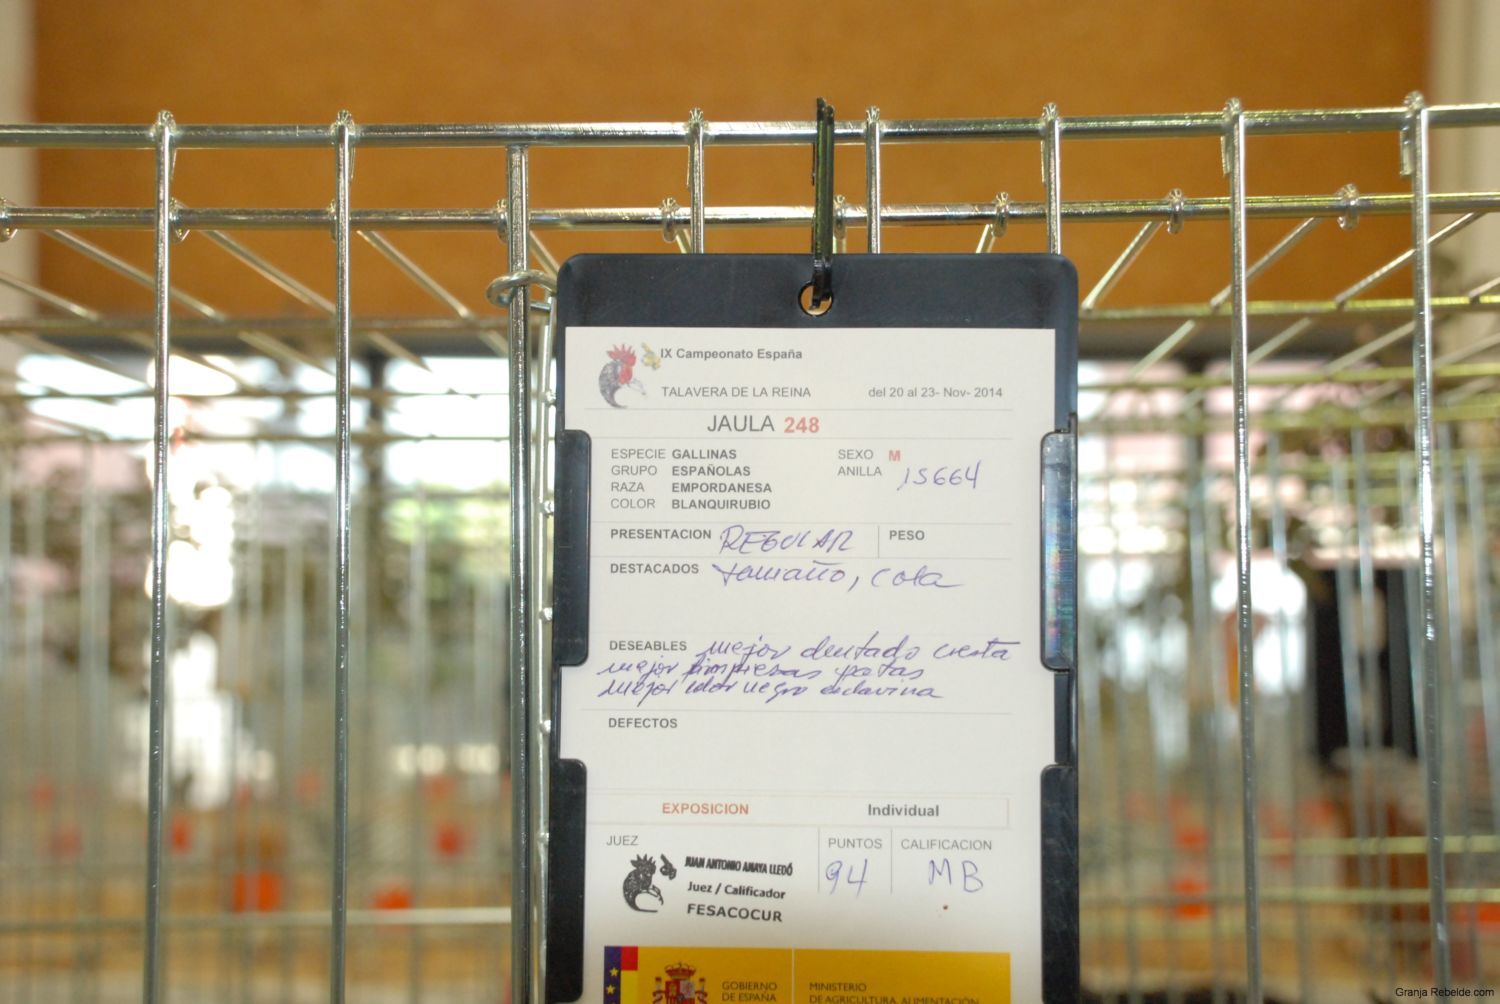 IX Campeonato España
TALAVERA DE LA REINA del 20 al 23- Nov- 2014
JAULA 248
ESPECIE GALLINAS SEXO M
GRUPO ESPAÑOLAS ANILLA 15664
RAZA EMPORDANESA
COLOR BLANQUIRUBIO
PRESENTACION REGULAR PESO
DESTACADOS tamaño, cola
DESEABLES mejor dentado cresta
mejor limpiezas patas
mejor color negro esclavina
DEFECTOS
EXPOSICION Individual
JUEZ PUNTOS CALIFICACION
JUAN ANTONIO ANAYA LLEDÓ 94 MB
Juez / Calificador
FESACOCUR
GOBIERNO MINISTERIO
DE ESPAÑA DE AGRICULTURA, ALIMENTACIÓN
Granja Rebelde.com